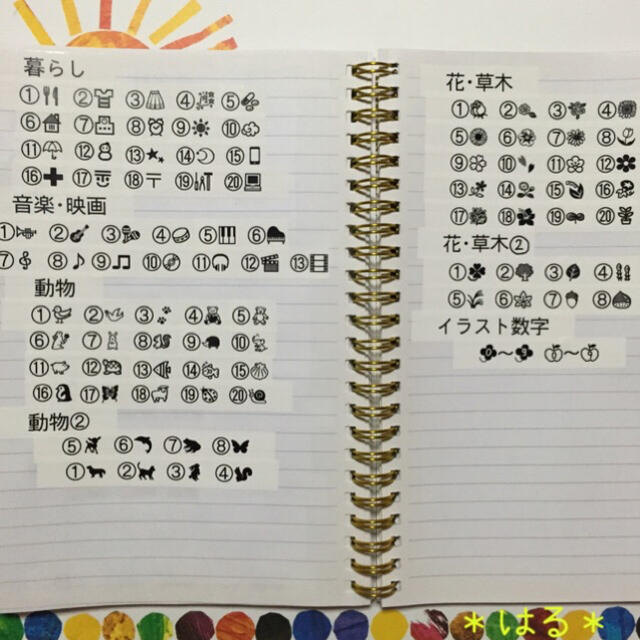 暮らし
① ② ③ ④ ⑤
⑥ ⑦ ⑧ ⑨ ⑩
⑪ ⑫ ⑬ ⑭ ⑮
⑯ ⑰ ⑱〒 ⑲ ⑳
音楽・映画
① ② ③ ④ ⑤ ⑥
⑦ ⑧♪ ⑨♫ ⑩ ⑪ ⑫ ⑬
動物
① ② ③ ④ ⑤
⑥ ⑦ ⑧ ⑨ ⑩
⑪ ⑫ ⑬ ⑭ ⑮
⑯ ⑰ ⑱ ⑲ ⑳
動物②
⑤ ⑥ ⑦ ⑧
① ② ③ ④
花・草木
① ② ③ ④
⑤ ⑥ ⑦ ⑧
⑨ ⑩ ⑪ ⑫
⑬ ⑭ ⑮ ⑯
⑰ ⑱ ⑲ ⑳
花・草木②
① ② ③ ④
⑤ ⑥ ⑦ ⑧
イラスト数字
0～9 0～9
＊はる＊